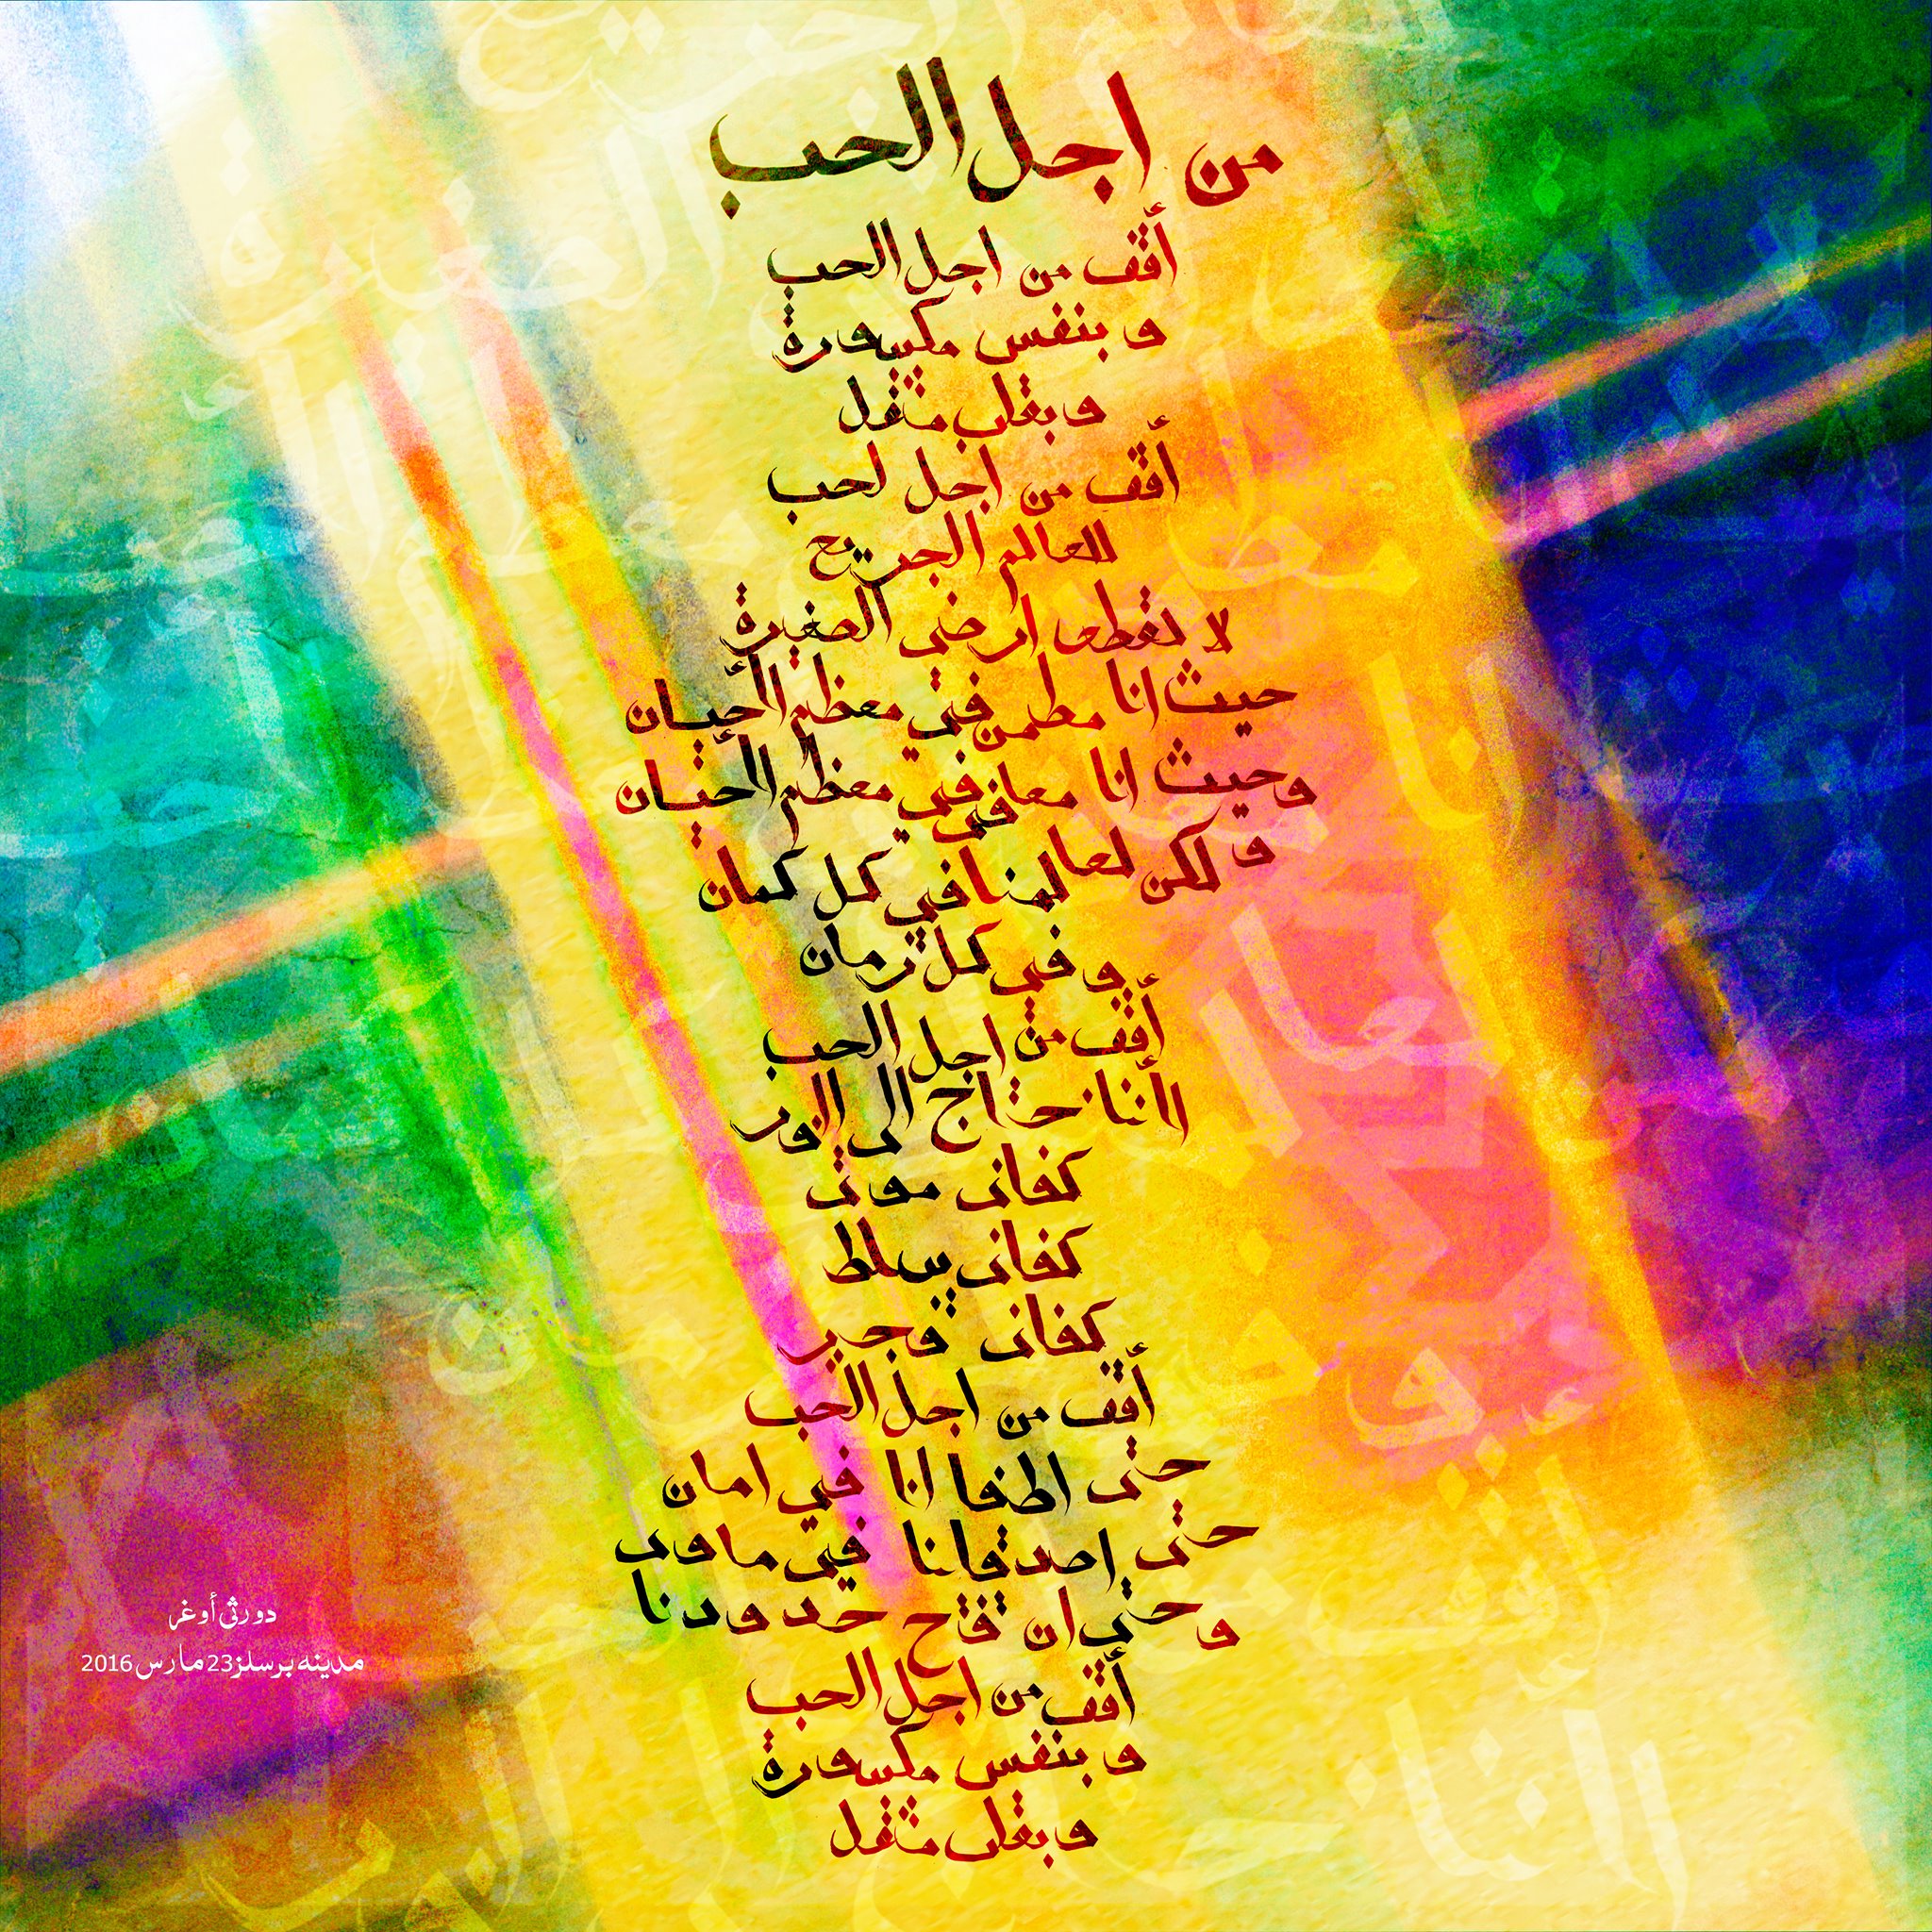 من اجل الحب
أقف من اجل الحب
و بنفس مكسورة
و بقلب مثقل
أقف من اجل لحب
للعالم الجريح
لا تقطعا ارضي الصغيرة
حيث انا مطمن في معظم األحيان
وحيث انا معافى في معظم األحيان
و لكن لعالمنا في كل كمان
و في كل زمان
أقف من اجل الحب
األننا نحتاج الى النور
كفانى موت
كفانى تسلط
كفانى فجير
أقف من اجل الحب
حتى اطفا انا في امان
حتى اصدقانا في ماوى
وحتى ان تفتح حدودنا
أقف من اجل الحب
و بنفس مكسورة
و بقلب مثقل
دورثي أوغر
مدينه برسلز 23 مارس 2016